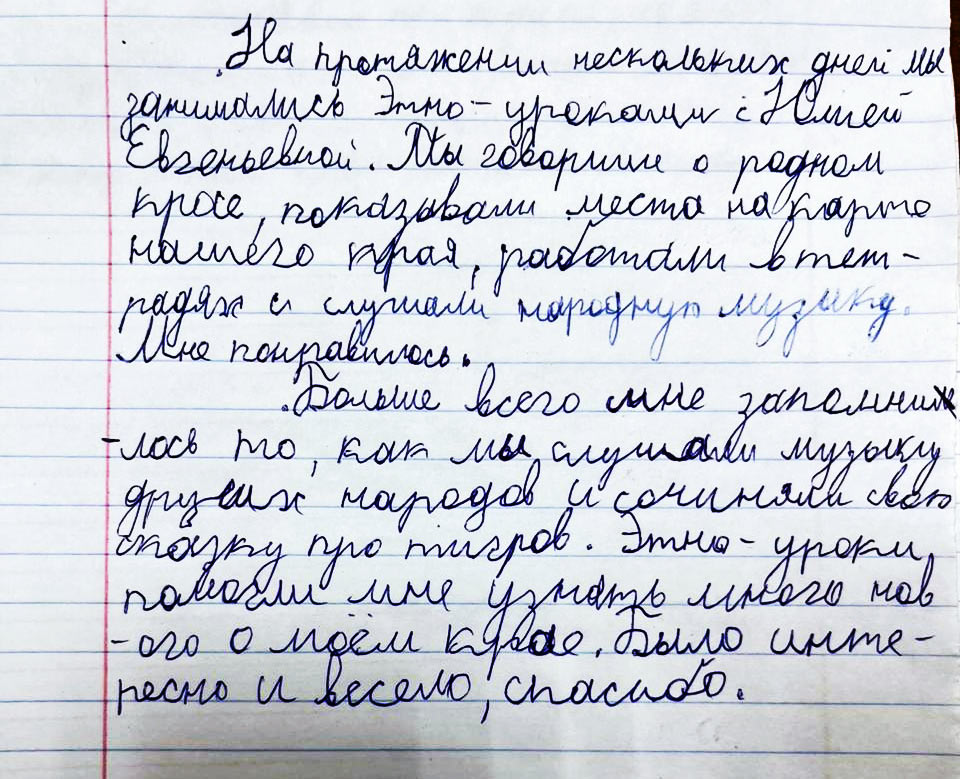 На протяжении нескольких дней мы
занимались Этно-уроками с Юлией
Евгеньевной. Мы говорили о родном
крае, показывали места на карте
нашего края, работали в тет-
радях и слушали народную музыку.
Мне понравилось.
Больше всего мне запомни
-лось то, как мы слушали музыку
других народов и сочиняли свою
сказку про тигров. Этно-уроки
помогли мне узнать много нов
-ого о моём крае. Было инте-
ресно и весело, спасибо.